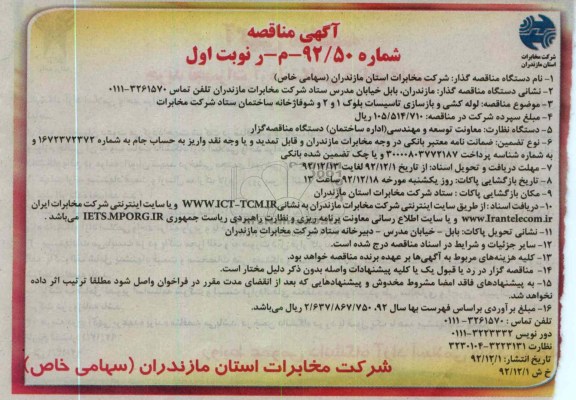 آگهی مناقصه
شماره ۹۲/۵۰-م-ر نوبت اول
شرکت مخابرات
استان مازندران
۱- نام دستگاه مناقصه گذار: شرکت مخابرات استان مازندران (سهامی خاص)
۲- نشانی دستگاه مناقصه گذار: مازندران، بابل خیابان مدرس ستاد شرکت مخابرات مازندران تلفن تماس ۳۲۶۱۵۷۰-۰۱۱۱
۳-موضوع مناقصه: لوله کشی و بازسازی تاسیسات بلوک ۱ و ۲ و شوفاژخانه ساختمان ستاد شرکت مخابرات
۴- مبلغ سپرده شرکت در مناقصه: ۱۰۵/۵۱۴/۷۱۰ ریال
۵- دستگاه نظارت: معاونت توسعه و مهندسی(اداره ساختمان) دستگاه مناقصه‌گزار
۶- نوع تضمین: ضمانت نامه معتبر بانکی در وجه مخابرات مازندران و قابل تمدید و یا وجه نقد واریز به حساب جام به شماره ۱۶۷۲۳۷۲۳۷۲ و
به شماره شناسه پرداخت ۳۰۰۰۰۸۰۳۷۷۲۱۸۷ و یا چک تضمین شده بانکی
۷- مهلت دریافت و تحویل اسناد: از تاریخ ۹۲/۱۲/۱ لغایت ۹۲/۱۲/۱۳
۸- تاریخ بازگشایی پاکات: روز یکشنبه مورخه ۹۲/۱۲/۱۸ ساعت ۱۳
۹- مکان بازگشایی پاکات : ستاد شرکت مخابرات استان مازندران
۱۰- دریافت اسناد :از طریق سایت اینترنتی شرکت مخابرات مازندران به نشانی WWW.ICT-TCM.IR و یا سایت اینترنتی شرکت مخابرات ایران
www.Irantelecom.ir و یا سایت اطلاع رسانی معاونت برنامه ریزی و نظارت راهبردی ریاست جمهوری IETS.MPORG.IR می‌باشد .
۱۱- نشانی تحویل پاکات: بابل - خیابان مدرس - دبیرخانه ستاد شرکت مخابرات مازندران
۱۲- سایر جزئیات و شرایط در اسناد مناقصه درج شده است.
۱۳- کلیه هزینه‌های مربوط به آگهی‌ها بر عهده برنده مناقصه خواهد بود.
۱۴- مناقصه گزار در رد یا قبول یک یا کلیه پیشنهادات واصله بدون ذکر دلیل مختار است.
۱۵- به پیشنهادهای فاقد امضا مشروط مخدوش و پیشنهادهایی که بعد از انقضای مدت مقرر در فراخوان واصل شود مطلقا ترتیب اثر داده
نخواهد شد.
۱۶- مبلغ برآوردی براساس فهرست بها سال ۹۲، ۲/۶۳۷/۸۶۷/۷۵۰ ریال می‌باشد.
تلفن تماس : ۳۲۶۱۵۷۰-۰۱۱۱
دور نویس ۳۲۲۳۳۳۲-۰۱۱۱
نظارت ۳۲۲۳۱۳۱-۳۲۳۰۱۰۴
تاریخ انتشار: ۹۲/۱۲/۱
خ ش ۹۲/۱۲/۱
شرکت مخابرات استان مازندران (سهامی خاص)